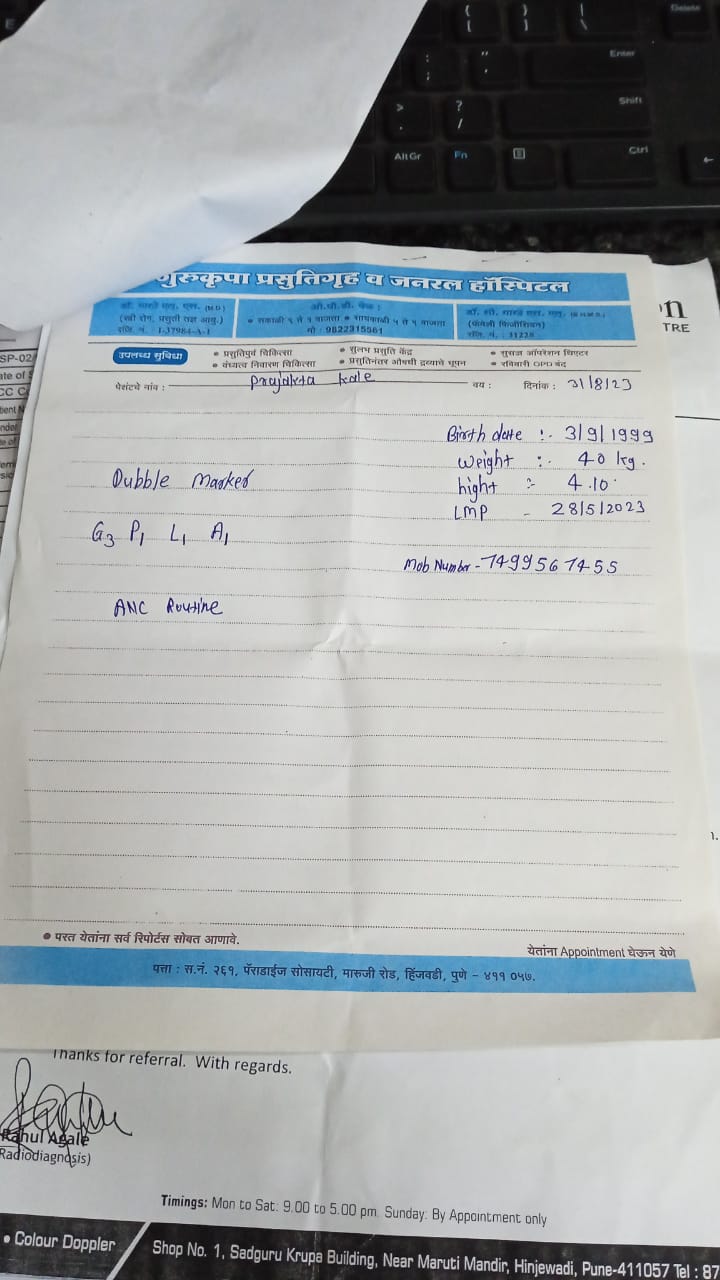 Delete
Enter
Shift
Alt Gr
Fn
Ctrl
गुरुकृपा प्रसुतिगृह व जनरल हॉस्पिटल
(स्त्री रोग, प्रसुती तज्ञ आयु.)
रजि. नं. I-37984-A-1
मो : 9822315561
(फॅमिली फिजीशियन)
रजि. नं. : 31228
TRE
उपलब्ध सुविधा
• प्रसुतिपुर्व चिकित्सा
• वंध्यत्व निवारण चिकित्सा
• सुलभ प्रसुति केंद्र
• प्रसुतिनंतर औषधी द्रव्याचे धूपन
• सुसज्ज ऑपरेशन थिएटर
• रविवारी OPD बंद
पेशंटचे नांव : Prajakta Kale वय : दिनांक : 31/8/23
Birth date :- 3/9/1999
weight :- 40 kg.
Dubble Marker
hight :- 4.10
LMP - 28/5/2023
G3 P1 L1 A1
Mob Number - 7499567455
ANC Routine
• परत येतांना सर्व रिपोर्टस सोबत आणावे.
येतांना Appointment घेऊन येणे
पत्ता : स.नं. २६१, पॅराडाईज सोसायटी, मारुजी रोड, हिंजवडी, पुणे - ४११ ०५७.
Thanks for referral. With regards.
Rahul Agale
Radiodiagnosis)
Timings: Mon to Sat: 9.00 to 5.00 pm. Sunday: By Appointment only
• Colour Doppler
Shop No. 1, Sadguru Krupa Building, Near Maruti Mandir, Hinjewadi, Pune-411057 Tel : 87